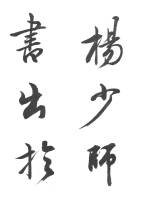 楊少師
書出於